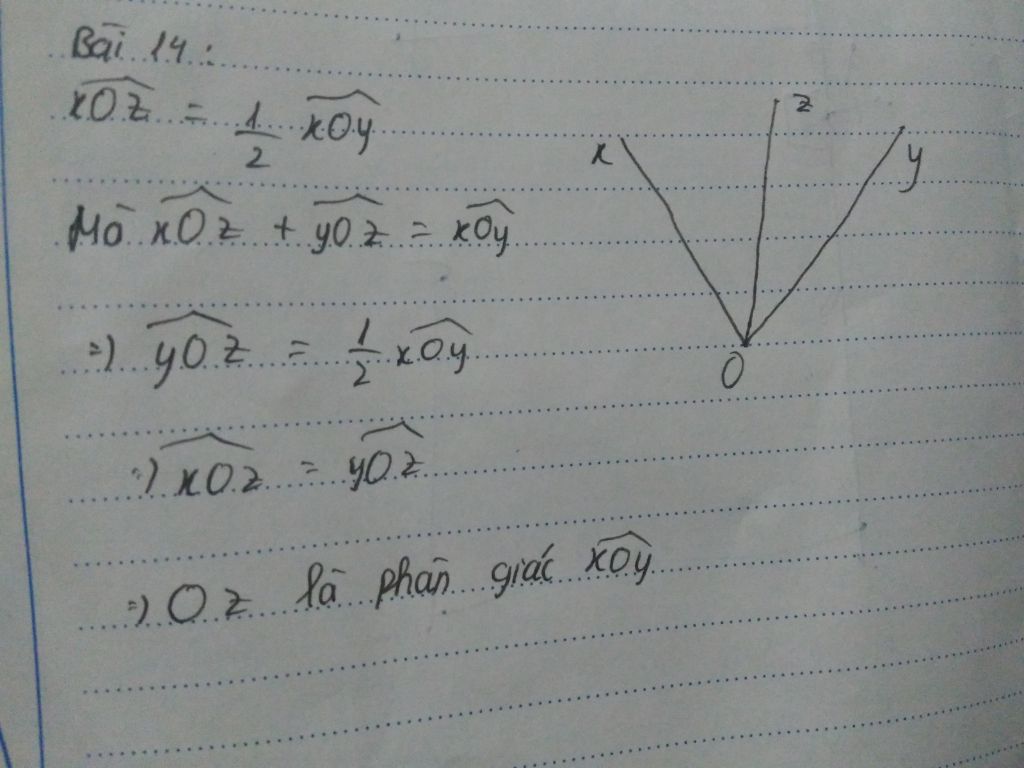 Bài 14:
xOz = 1/2 xOy
Mà xOz + yOz = xOy
=) yOz = 1/2 xOy
=) xOz = yOz
=) Oz là phân giác xOy
x
z
y
O